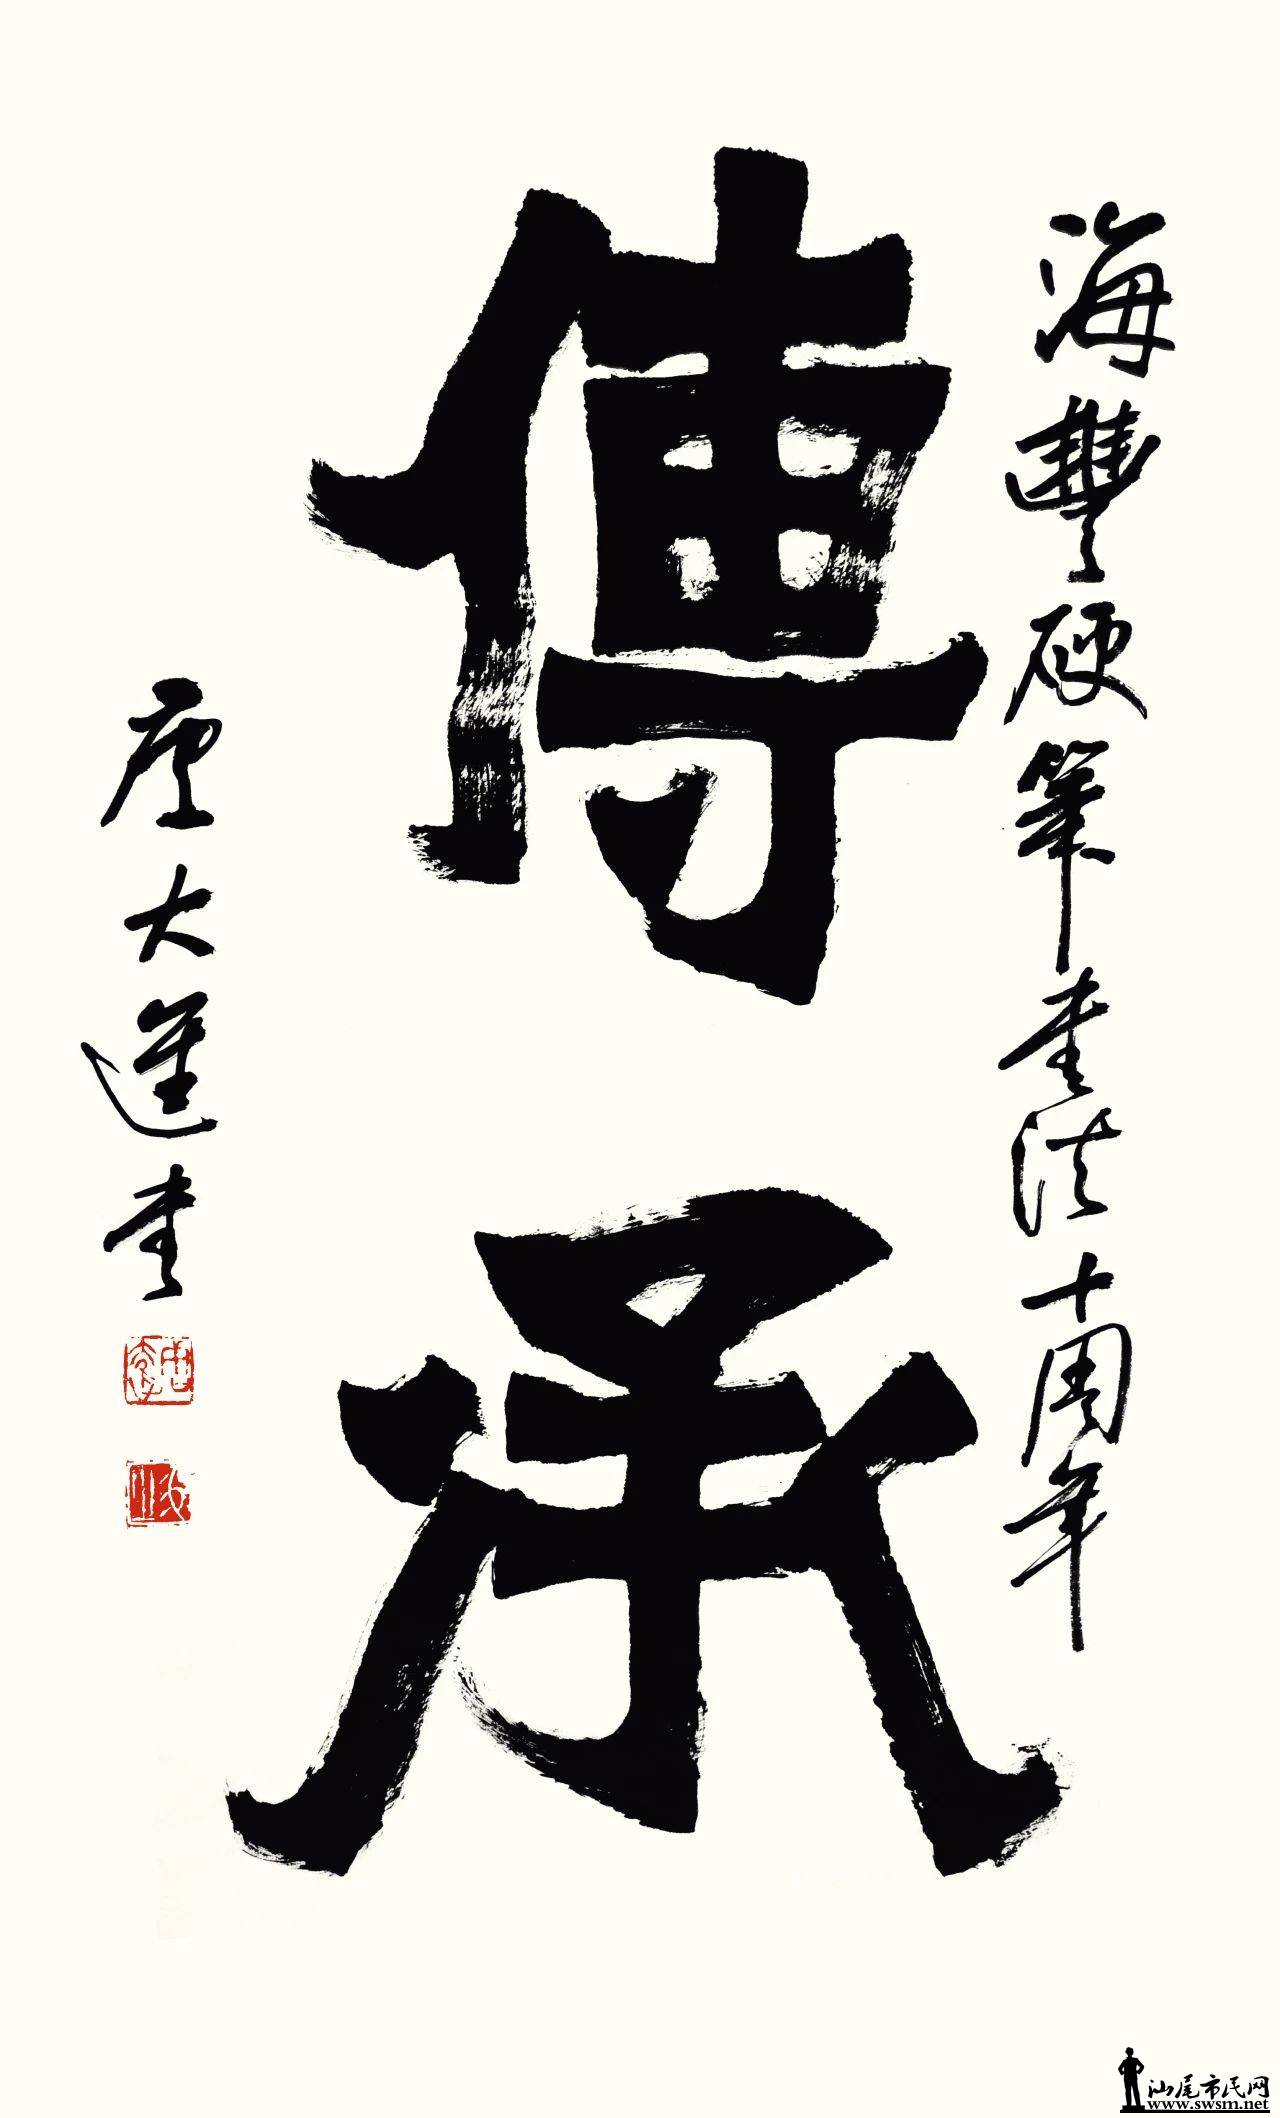 海豐硬筆書法十周年
傳承
大進書
汕尾市民网
www.swsm.net